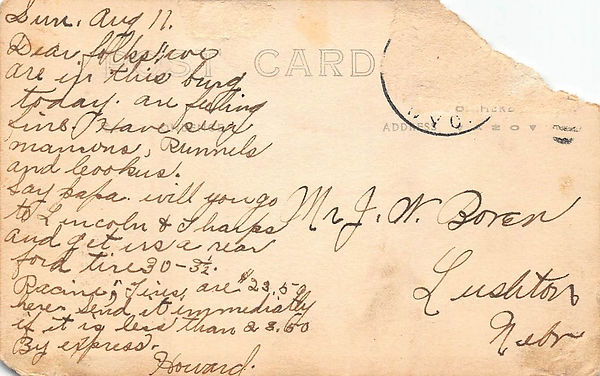 Sun. Aug 11.
Dear folks: we
are in this burg
today. are feeling
fine. Have seen
mansons, Runnels
and Cookus.
Say papa. will you go
to Lincoln & Sharps
and get us a rear
ford tire 30-3½.
Racine, Tires are $23.50
here. Send it immediatly
if it is less than 23.50
By express.
Howard.
POST CARD
ADDRESS
WYO.
Mr J. W. Boren
Lushton
Nebr